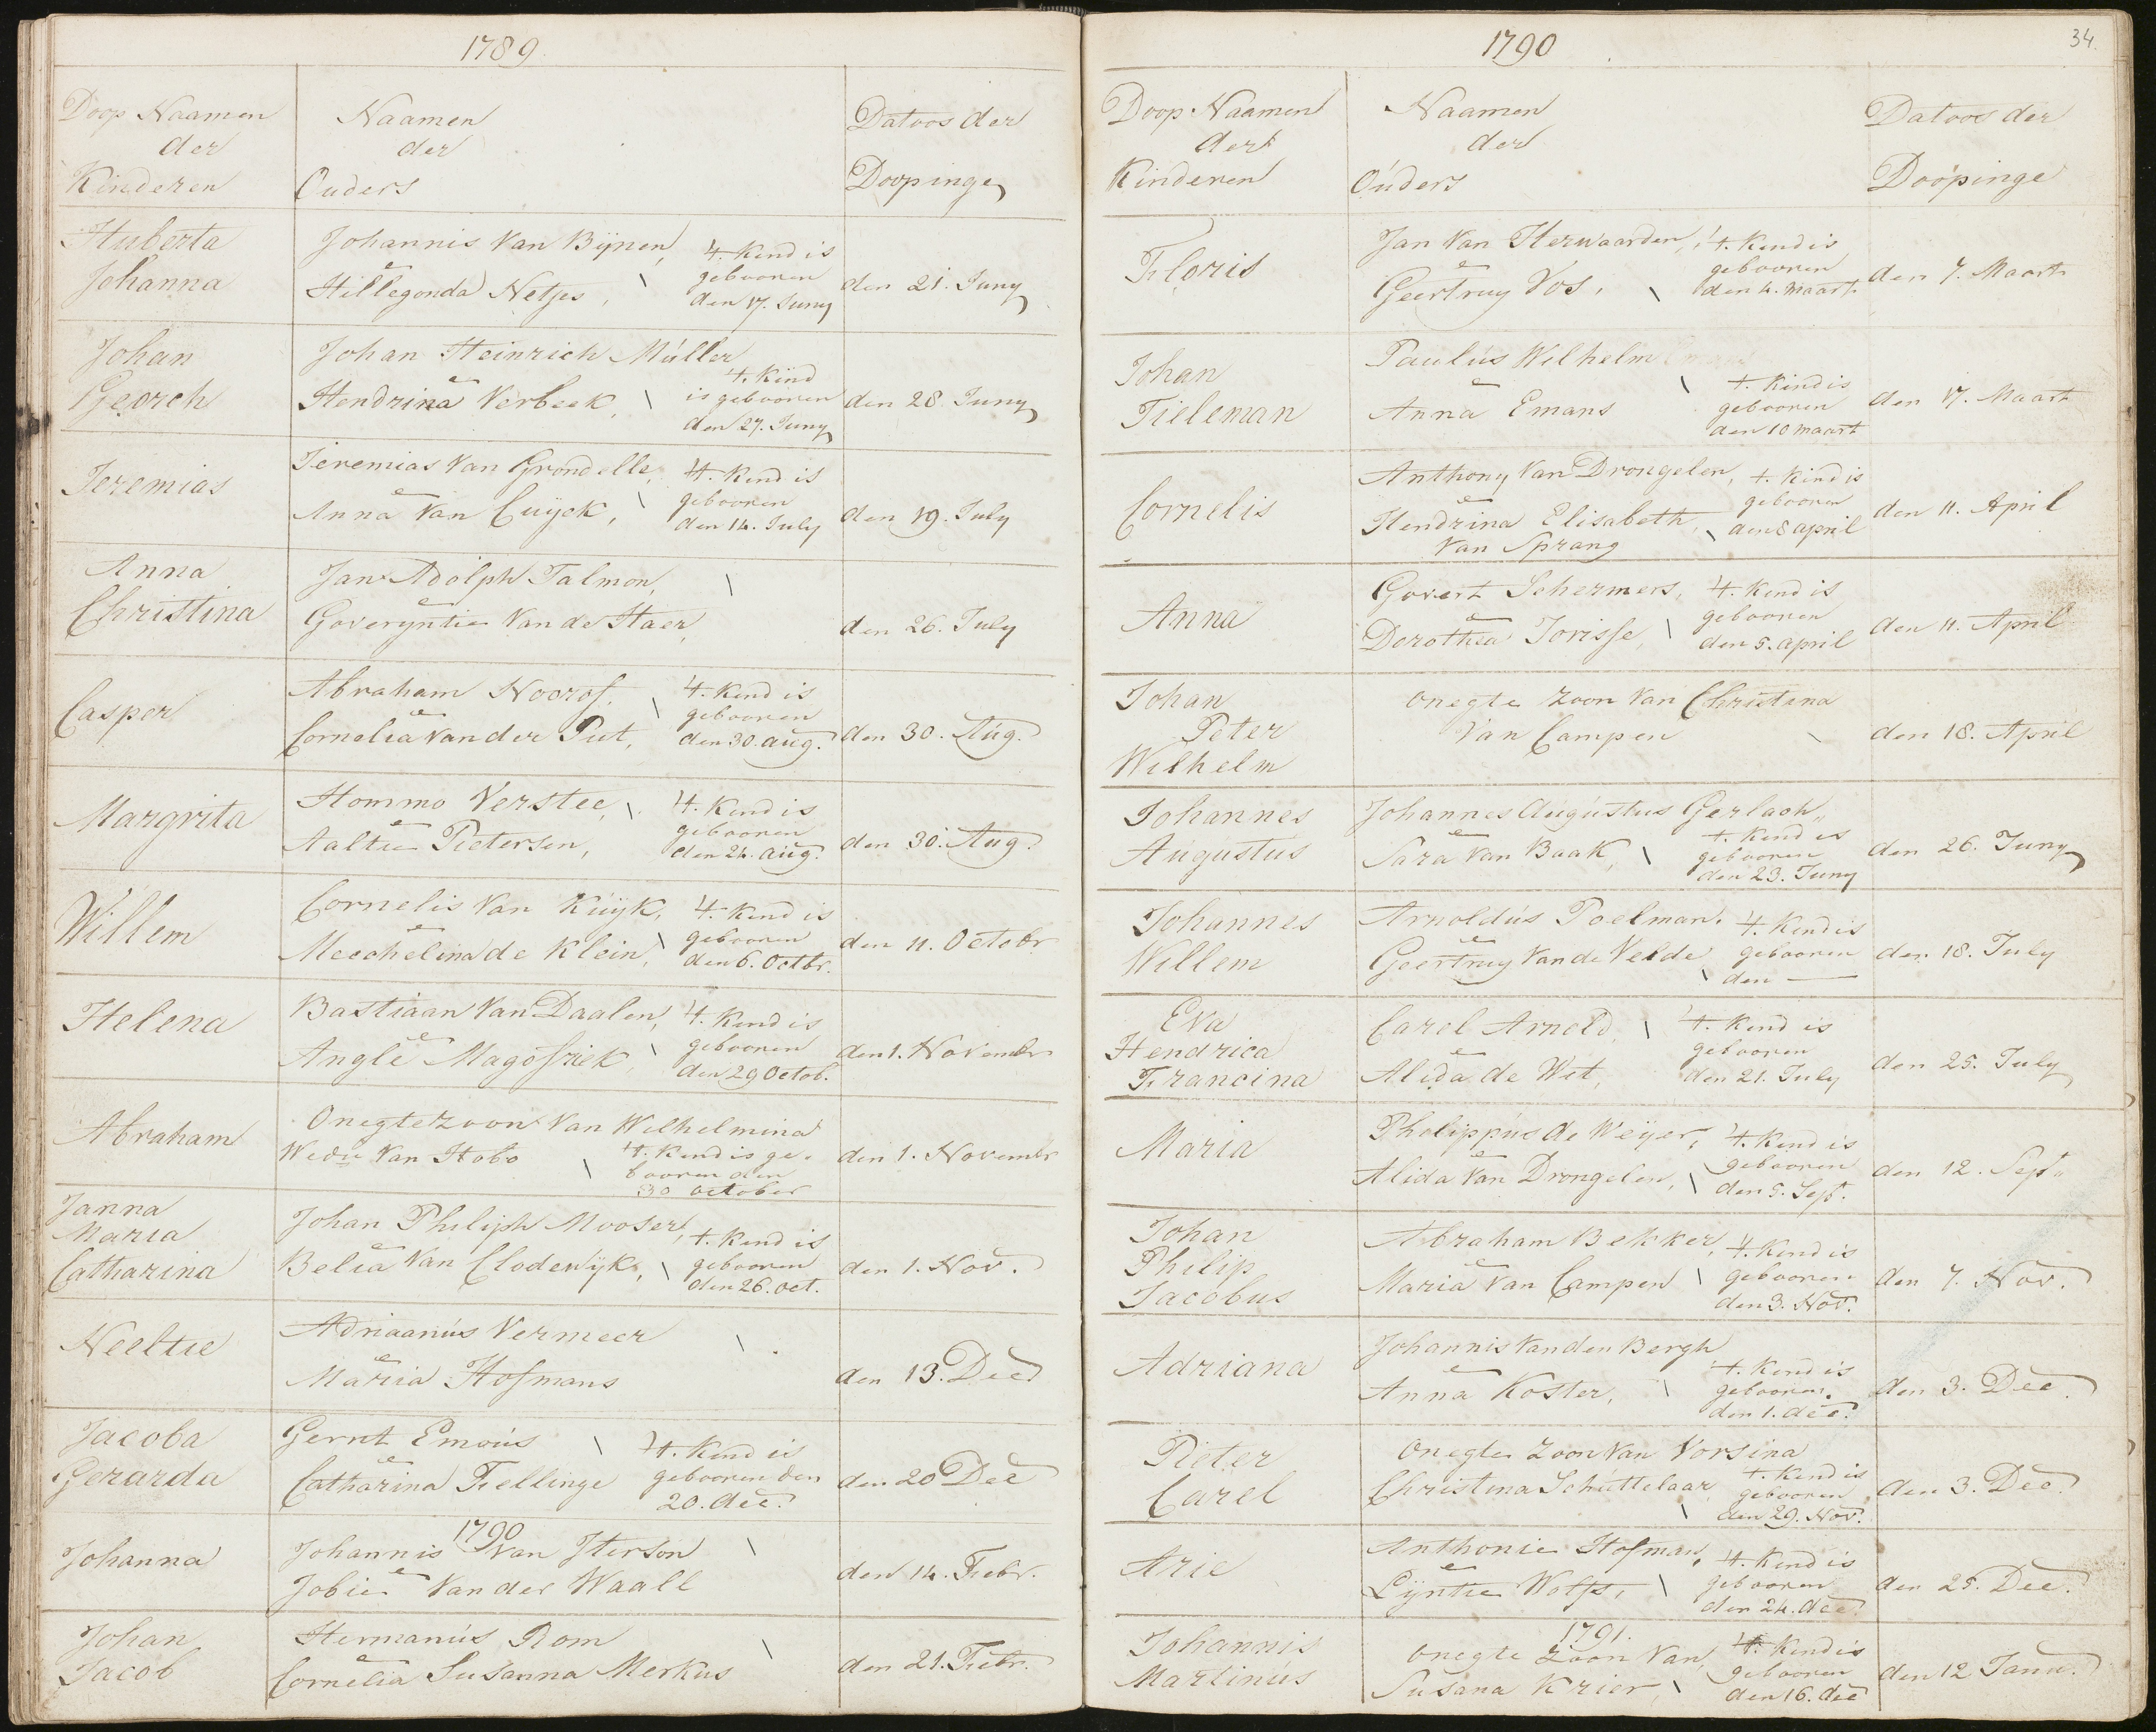 1789
Doop Naamen
der
Kinderen
Naamen
der
Ouders
Datoos der
Doopinge
Huberta
Johanna
Johannis Van Bijnen,
e
Hillegonda Netjes,
't Kind is
gebooren
den 17. Juny
den 21. Juny
Johan
Georch
Johan Heinrich Múller
e
Hendrina Verbeek,
't Kind
is gebooren
den 27. Juny
den 28 Juny
Jeremias
Jeremias Van Grondelle,
e
Anna Van Cuÿck,
't Kind is
gebooren
den 14. July
den 19. July
Anna
Christina
Jan Adolph Talmon,
e
Goveryntie Van de Staer,
den 26. July
Casper
Abraham Noorof,
e
Cornelia Van der Put,
't Kind is
gebooren
den 30. aug.
den 30. Aúg.
Margrita
Hommo Verstee,
e
Aaltie Pietersen,
't Kind is
gebooren
den 24. aúg.
den 30. Aug.
Willem
Cornelis Van Kúÿk,
e
Meechelina de Klein,
't Kind is
gebooren
den 6. Octbr.
den 11. Octobr
Helena
Bastiaan Van Daalen,
e
Anglē
't Kind is
gebooren
den 29 Octob.
den 1. Novembr
Abraham
Onegte zoon Van Wilhelmina
Wedu Van Hobo
't Kind is ge-
booren den
30 october
den 1. Novembr
Janna
Maria
Catharina
Johan Philiph Mooser,
e
Belia Van Clodewijk,
't Kind is
gebooren
den 26. oct.
den 1. Nov.
Neeltie
Adriaanús Vermeer
e
Maria Hofmans
den 13. Dec
Jacoba
Gerarda
Gerrit Emoús
e
Catharina Fellinge
't Kind is
gebooren den
20. dec.
den 20 Dec
1790
Johanna
Johannis Van Iterson
e
Jobie Van der Waall
den 14. Febr.
Johan
Jacob
Hermanús Rom
e
Cornelia Susanna Merkus
den 21. Febr.
1790
34.
Doop Naamen
der
Kinderen
Naamen
der
Oúders
Datoos der
Doopinge
Floris
Jan Van Herwaarden,
e
Geertruy Vos,
't Kind is
gebooren
den 4. Maart
den 7. Maart
Johan
Tieleman
Paulús Wilhelm
e
Anna Emans
't Kind is
gebooren
den 10 maart
den 17. Maart
Cornelis
Anthony Van Drongelen,
e
Hendrina Elisabeth,
Van Sprang
't Kind is
gebooren
den 8 april
den 11. April
Anna
Govert Schermers,
e
Dorothea Jorisse,
't Kind is
gebooren
den 5. april
den 11. April
Johan
Peter
Wilhelm
onegte zoon Van Christina
Van Campen
den 18. April
Johannes
Augustus
Johannes Augústus Gerlach,,
e
Sara Van Baak,
't Kind is
gebooren
den 23. Juny
den 26. Juny
Johannes
Willem
Arnoldús Poelman,
e
Geertruy Van de Velde
't Kind is
gebooren
den —
den 18. July
Eva
Hendrica
Francina
Carel Arnold,
e
Alida de Wit,
't Kind is
gebooren
den 21. July
den 25. July
Maria
Philippús de Weÿer,
e
Alida Van Drongelen,
't Kind is
gebooren
den 5. Sept.
den 12. Sept.
Johan
Philip
Jacobus
Abraham Bekker,
e
Maria Van Campen
't Kind is
gebooren
den 3. Nov.
den 7. Nov.
Adriana
Johannis Van den Bergh
e
Anna Koster,
't Kind is
gebooren.
den 1. dec.
den 3. Dec.
Pieter
Carel
Onegte zoon Van Vorsina
Christina Schuttelaar
't Kind is
gebooren
den 29. Nov.
den 3. Dec.
Arie
Anthonie Hofman,
e
Lijntie Wolfs,
't Kind is
gebooren
den 24. dec.
den 25. Dec.
1791.
Johannis
Martinús
onegte Zoon Van
Susana Krier,
't Kind is
gebooren
den 16. dec
den 12 Janu.